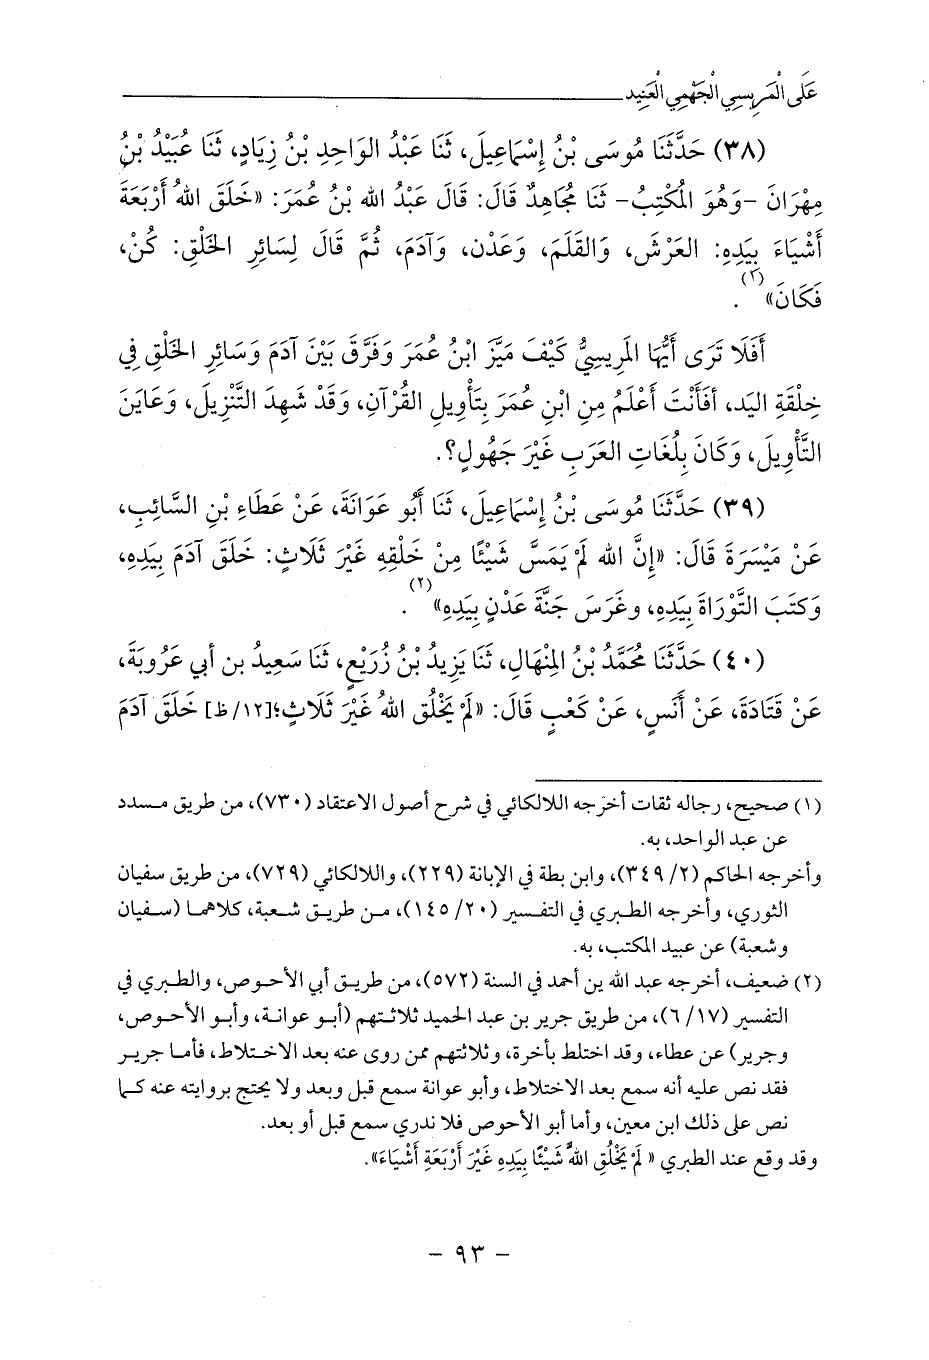 عَلَى الْمَرِيسِي الْجَهْمِي الْعَنِيد
(٣٨) حَدَّثَنَا مُوسَى بْنُ إِسْمَاعِيلَ، ثَنَا عَبْدُ الوَاحِدِ بْنُ زِيَادٍ، ثَنَا عُبَيْدُ بْنُ
مِهْرَانَ -وَهُوَ المُكْتِبُ- ثَنَا مُجَاهِدٌ قَالَ: قَالَ عَبْدُ الله بْنُ عُمَرَ: «خَلَقَ اللهُ أَرْبَعَةَ
أَشْيَاءَ بِيَدِهِ: العَرْشَ، وَالقَلَمَ، وَعَدْنَ، وَآدَمَ، ثُمَّ قَالَ لِسَائِرِ الخَلْقِ: كُنْ،
فَكَانَ»(٢).
أَفَلَا تَرَى أَيُّهَا المَرِيسِيُّ كَيْفَ مَيَّزَ ابْنُ عُمَرَ وَفَرَّقَ بَيْنَ آدَمَ وَسَائِرِ الخَلْقِ فِي
خِلْقَةِ اليَدِ، أفَأَنْتَ أَعْلَمُ مِنِ ابْنِ عُمَرَ بِتَأْوِيلِ القُرْآنِ، وَقَدْ شَهِدَ التَّنْزِيلَ، وَعَايَنَ
التَّأْوِيلَ، وَكَانَ بِلُغَاتِ العَرَبِ غَيْرَ جَهُولٍ؟.
(٣٩) حَدَّثَنَا مُوسَى بْنُ إِسْمَاعِيلَ، ثَنَا أَبُو عَوَانَةَ، عَنْ عَطَاءِ بْنِ السَّائِبِ،
عَنْ مَيْسَرَةَ قَالَ: «إِنَّ الله لَمْ يَمَسَّ شَيْئًا مِنْ خَلْقِهِ غَيْرَ ثَلَاثٍ: خَلَقَ آدَمَ بِيَدِهِ،
وَكَتَبَ التَّوْرَاةَ بِيَدِهِ، وغَرَسَ جَنَّةَ عَدْنٍ بِيَدِهِ»(٢).
(٤٠) حَدَّثَنَا مُحَمَّدُ بْنُ المِنْهَالِ، ثَنَا يَزِيدُ بْنُ زُرَيْعٍ، ثَنَا سَعِيدُ بن أبي عَرُوبَةَ،
عَنْ قَتَادَةَ، عَنْ أَنَسٍ، عَنْ كَعْبٍ قَالَ: «لَمْ يَخْلُقِ اللهُ غَيْرَ ثَلَاثٍ؛[١٢/ظ] خَلَقَ آدَمَ
(١) صحيح، رجاله ثقات أخرَجه اللالكائي في شرح أصول الاعتقاد (٧٣٠)، من طريق مسدد
عن عبد الواحد، به.
وأخرجه الحاكم (٢/ ٣٤٩)، وابن بطة في الإبانة (٢٢٩)، واللالكائي (٧٢٩)، من طريق سفيان
الثوري، وأخرجه الطبري في التفسير (٢٠/ ١٤٥)، من طريق شعبة، كلاهما (سفيان
وشعبة) عن عبيد المكتب، به.
(٢) ضعيف، أخرجه عبد الله ين أحمد في السنة (٥٧٢)، من طريق أبي الأحوص، والطبري في
التفسير (١٧/ ٦)، من طريق جرير بن عبد الحميد ثلاثتهم (أبو عوانة، وأبو الأحوص،
وجرير) عن عطاء، وقد اختلط بأخرة، وثلاثتهم ممن روى عنه بعد الاختلاط، فأما جرير
فقد نص عليه أنه سمع بعد الاختلاط، وأبو عوانة سمع قبل وبعد ولا يحتج بروايته عنه كما
نص على ذلك ابن معين، وأما أبو الأحوص فلا ندري سمع قبل أو بعد.
وقد وقع عند الطبري « لَمْ يَخْلُقِ اللهُ شَيْئًا بِيَدِهِ غَيْرَ أَرْبَعَةِ أَشْيَاءَ».
- ٩٣ -